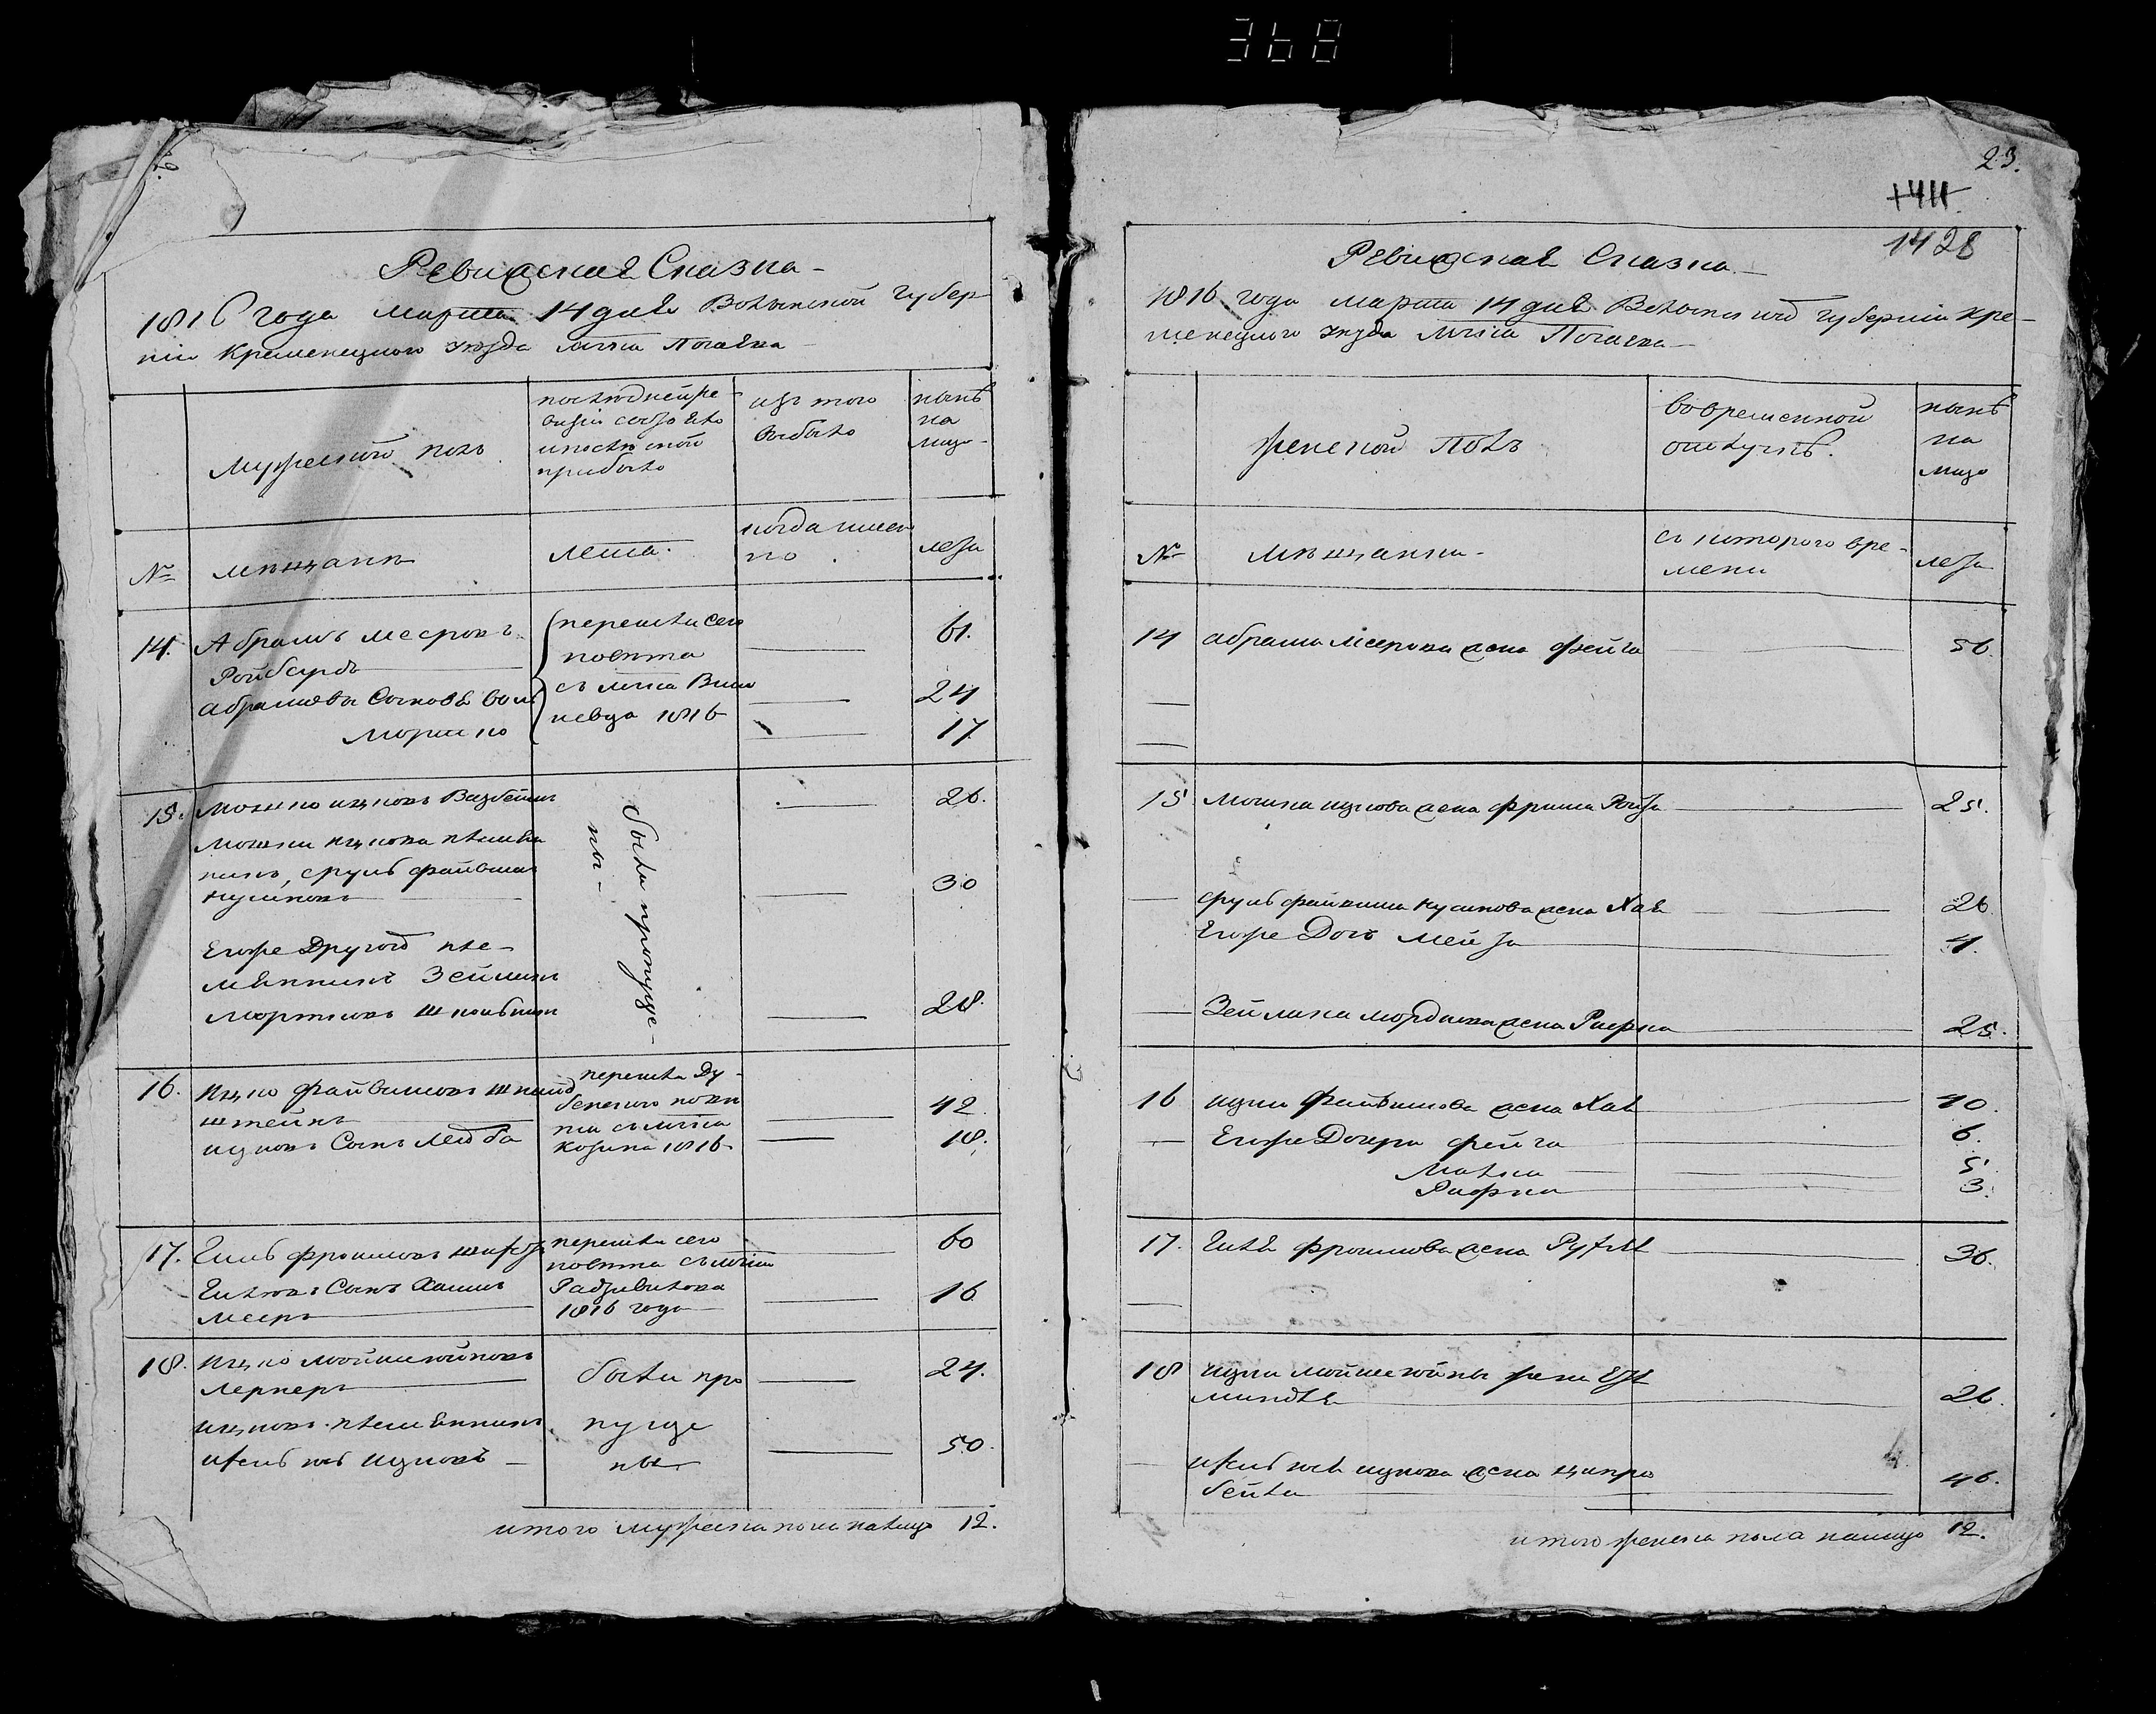 368
23.
1411
1428
Ревизская Сказка
1816 года марта 14 дня Волынской Губер-
нии Кременецкого уезда мѣста Почаева
мужеский полъ
последней ре-
визии состояло
и после оной
прибыло
изъ того
выбыло
ныне
на
лицо
№ мещане
лета.
когда имен
но
лета
14. Абрамъ Мееровъ
Ройберъ
перешли сего
повета
61.
Абрамовы Сыновья
с места Виш
невца 1816
24
Моршко
17
15. Мошко Ицковъ
26.
Мошки Ицкова племян
никъ, Сруль Файвиш
Нусимовъ
30
были пропуще-
ны
Его же Другой пле-
мянникъ Зейликъ
Мортковъ
28.
16. Ицко Файвишовъ
штейнъ
перешли Ду-
бенского пове
та с места
Козина 1816
42.
Ицковъ Сынъ Лейба
18.
17. Гиль Фроимовъ
перешли сего
повета с места
Радзивилова
1816 года
60
Гилювъ Сынъ Хаимъ
Мееръ
16
18. Ицко Мойшеюйновъ
Лернеръ
были про
пуще
ны
24.
Ицковъ племянникъ
Ицковъ
50.
итого мужеска пола налицо 12.
Ревизская Сказка
1816 года марта 14 дня Волынской Губернии Кре-
менецкого уезда места Почаева
женской полъ
во временной
отлучке.
ныне
на
лицо
№ мещанки
с которого вре-
мени
лета
14 Абрама Меерова жена Фейга 56.
15 Мошки Ицкова жена Фрима Ройза 25.
Сруль Файвиша Нусимова жена Хая 26
Его же Дочь Мейза 4.
Зейлика Мордкова жена Рифка 25.
16 Ицки Файвишова жена Хая 40.
Его же Дочери Фейга 6.
Малка 5
Рифка 3.
17. Гиля Фроимова жена Рухля 36.
18 Ицки Мойшеюйны жена
Миндля 26.
Ицкова жена Ципра
бейла 46.
итого женска пола налицо 12.